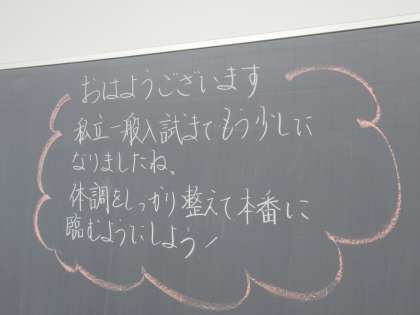 おはようございます
私立一般入試まで もう少しに
なりましたね、
体調をしっかり整えて本番に
臨むようにしよう!